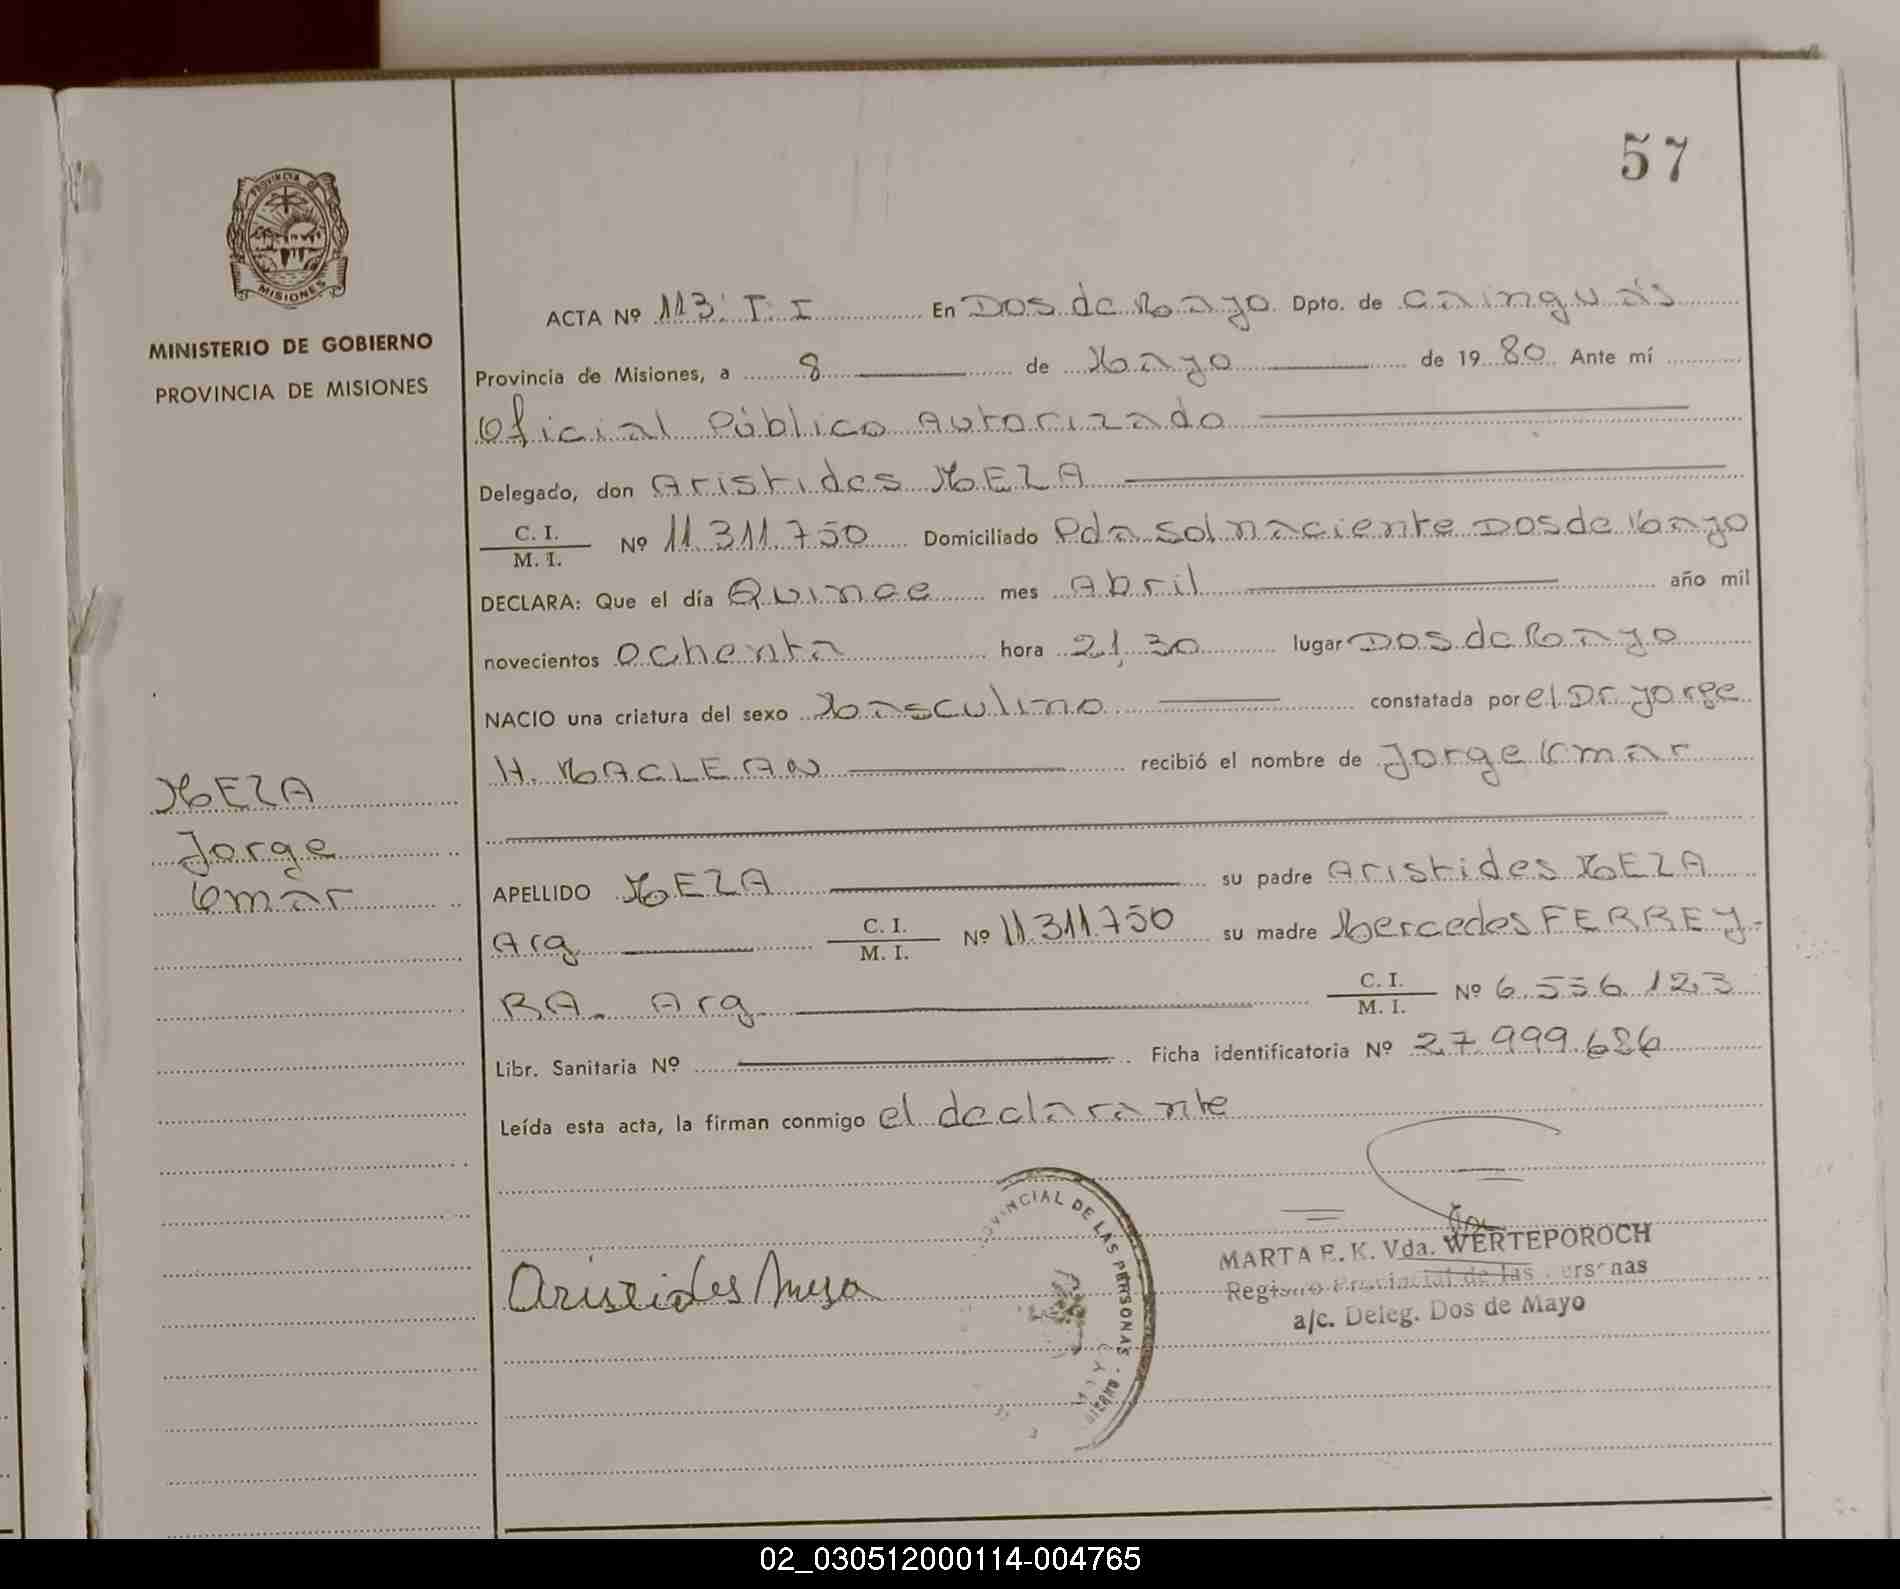 57
PROVINCIA DE
MISIONES
MINISTERIO DE GOBIERNO
PROVINCIA DE MISIONES
ACTA Nº 113: T: I En Dos de Mayo Dpto. de Cainguás
Provincia de Misiones, a 8 de Mayo de 1980 Ante mí
Oficial Público Autorizado
Delegado, don Aristides MEZA
C. I.
M. I. Nº 11.311.750 Domiciliado Pda Sol naciente Dos de Mayo
DECLARA: Que el día Quince mes Abril año mil
novecientos Ochenta hora 21,30 lugar Dos de Mayo
NACIO una criatura del sexo Masculino constatada por el Dr. Jorge
H. MACLEAN recibió el nombre de Jorge Omar
MEZA
Jorge
Omar
APELLIDO MEZA su padre Aristides MEZA
Arg C. I.
M. I. Nº 11.311.750 su madre Mercedes FERREY-
RA. Arg C. I.
M. I. Nº 6.556.123
Libr. Sanitaria Nº Ficha identificatoria Nº 27.999.686
Leída esta acta, la firman conmigo el declarante
VINCIAL DE LAS PERSONAS
Aristides Mesa
MARTA E. K. Vda. WERTEPOROCH
Registro Provincial de las Personas
a/c. Deleg. Dos de Mayo
02_030512000114-004765